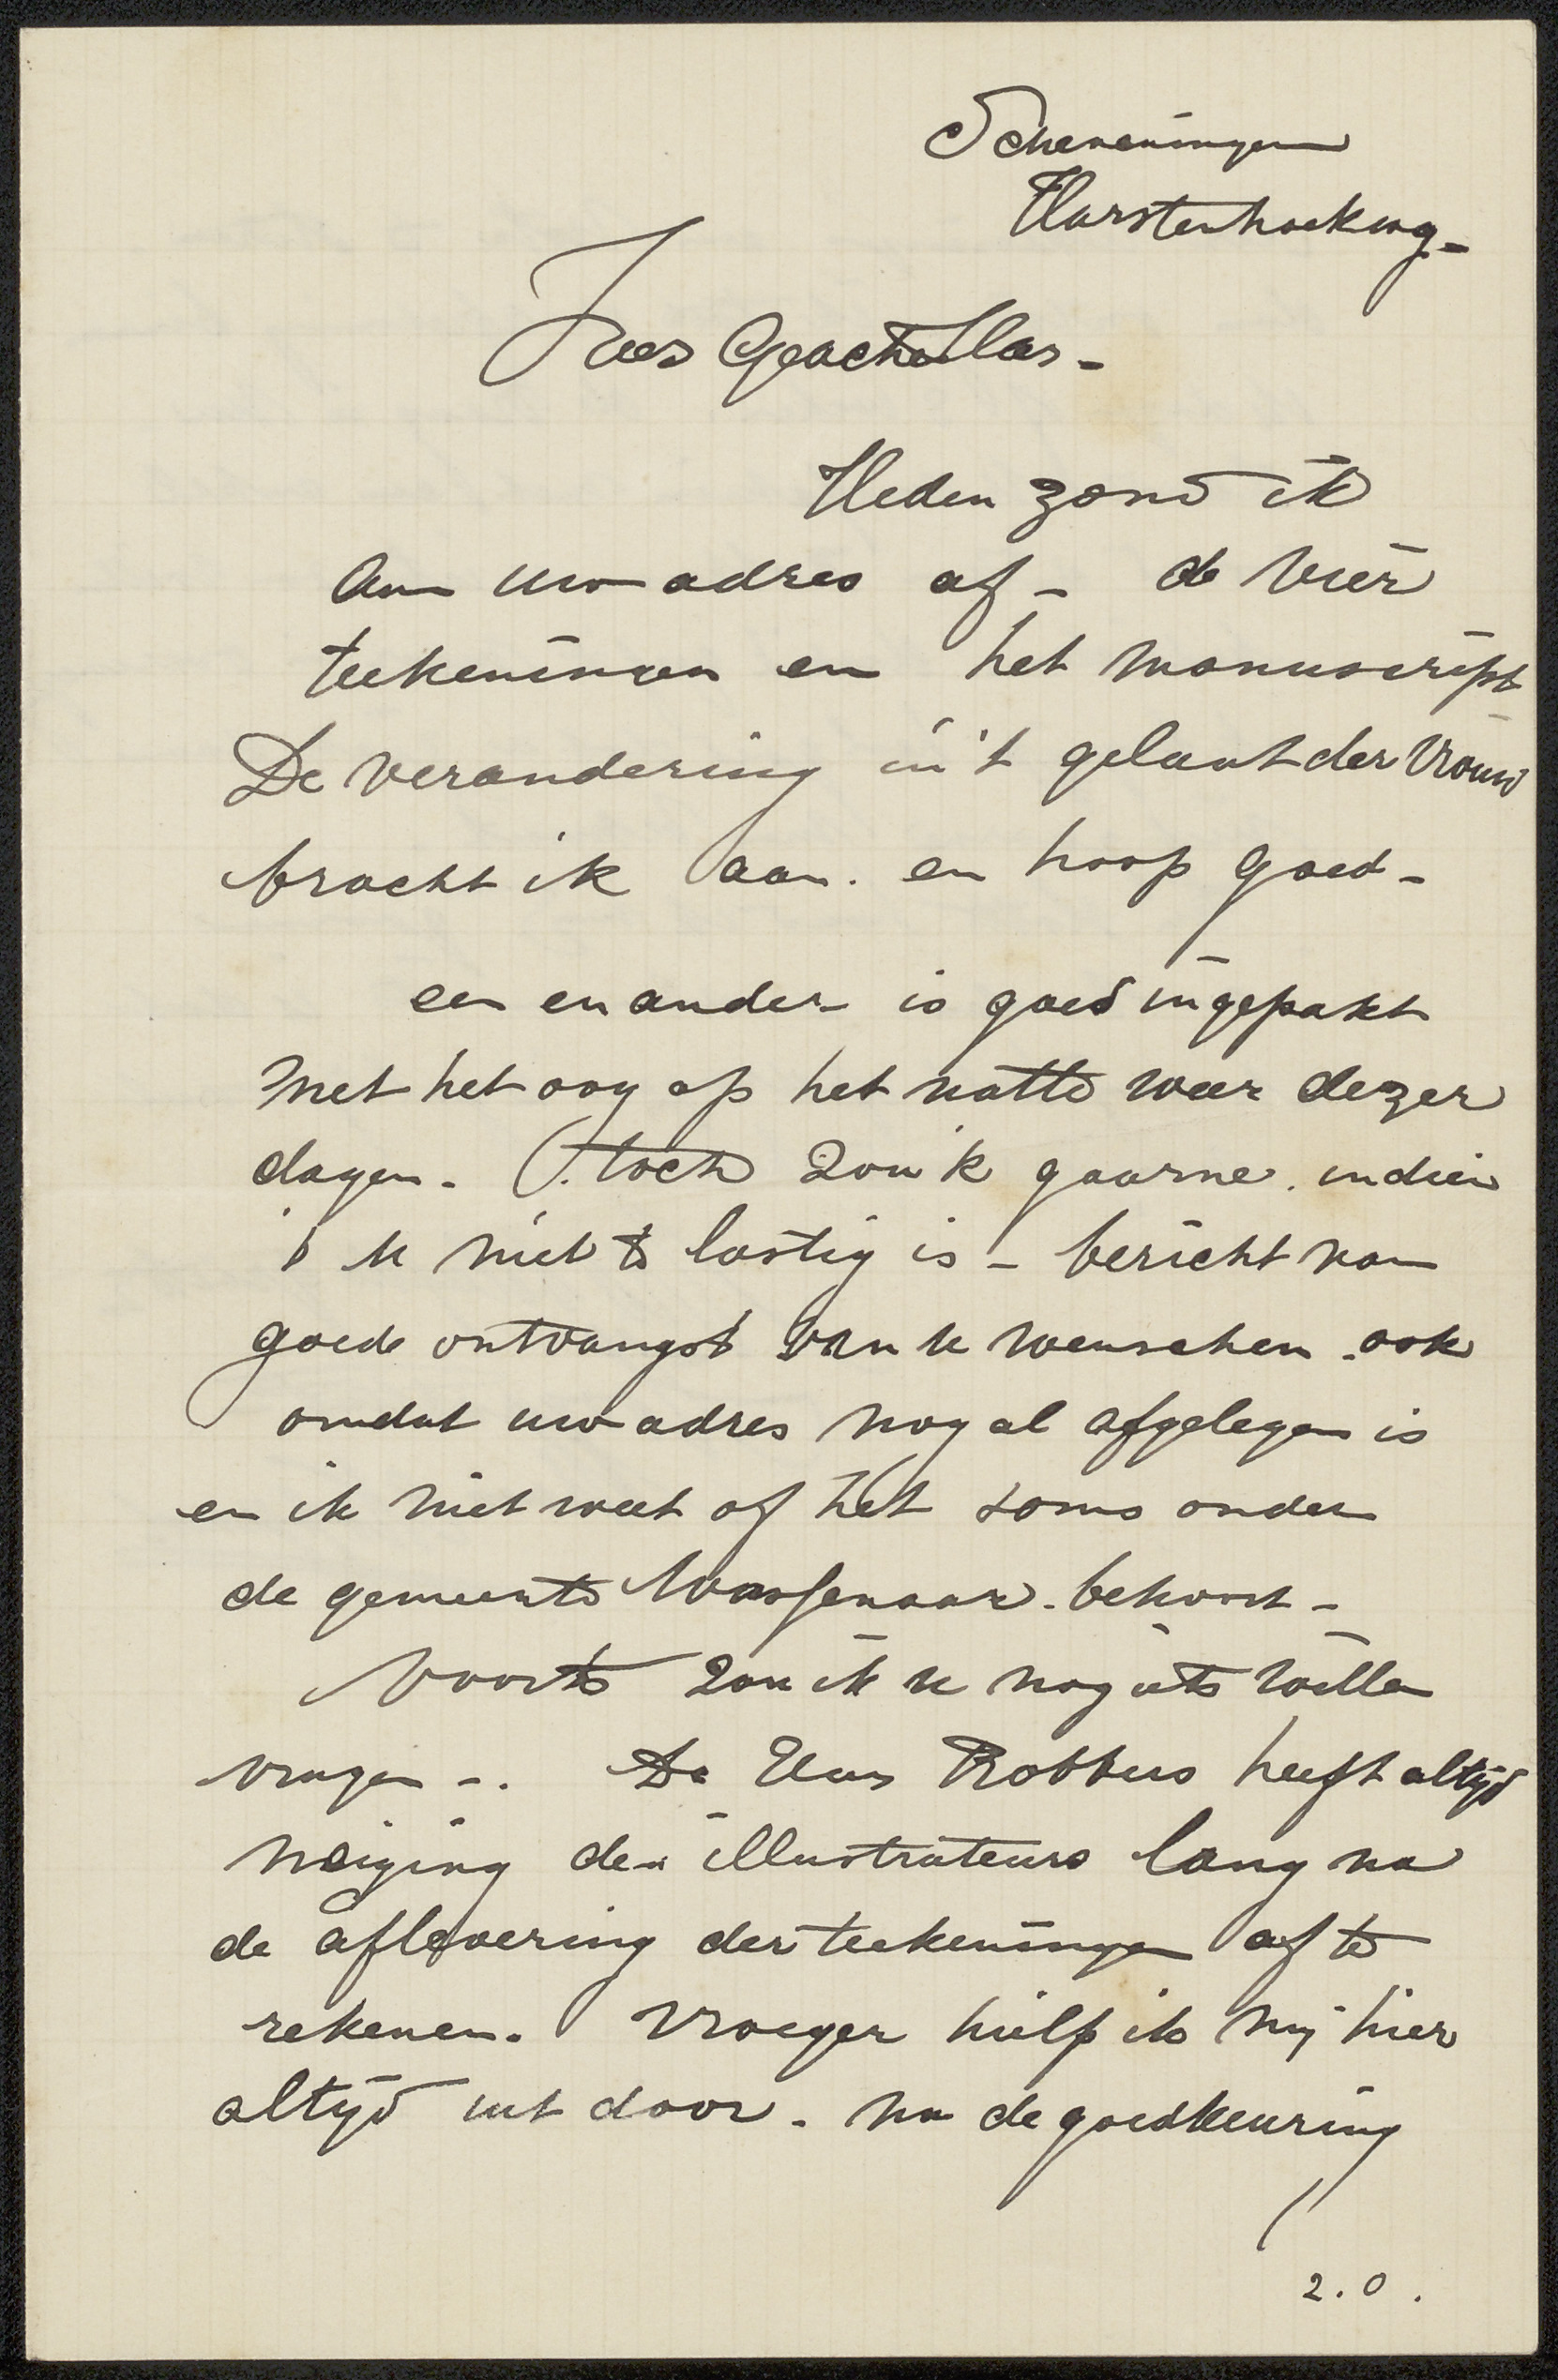 Scheveningen
Harstenhoekweg -
Zeer Geachte Heer -
Heden zond ik
aan uw adres af - de vier
teekeningen en het manuscript
De verandering in 't gelaat der vrouw
bracht ik aan. en hoop goed -
een en ander is goed ingepakt
met het oog op het natte weer dezer
dagen - toch zou ik gaarne. indien
't u niet te lastig is - bericht van
goede ontvangst van u wenschen. ook
omdat uw adres nog al afgelegen is
en ik niet weet of het soms onder
de gemeente Wassenaar. behoort -
Voorts zou ik u nog iets willen
vragen -. De Heer Robbers heeft altijd
neiging den illustrateurs lang na
de aflevering der teekeningen af te
rekenen. Vroeger hielp ik mij hier
altijd uit door. na de goedkeuring
z.o.